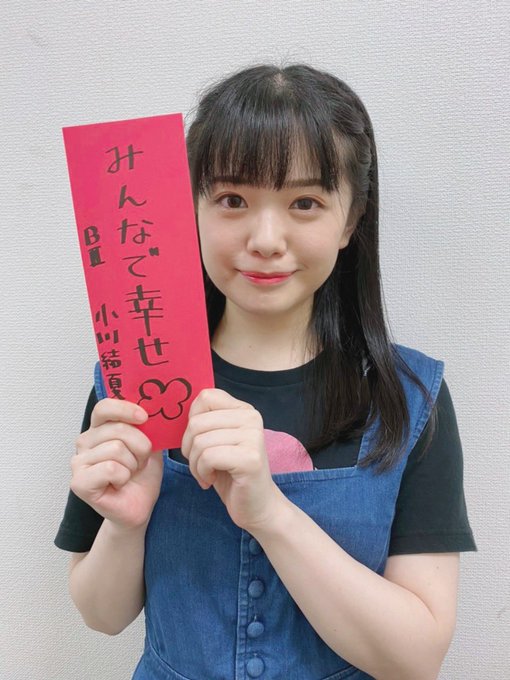 みんなで幸せ
BⅡ 小川結夏